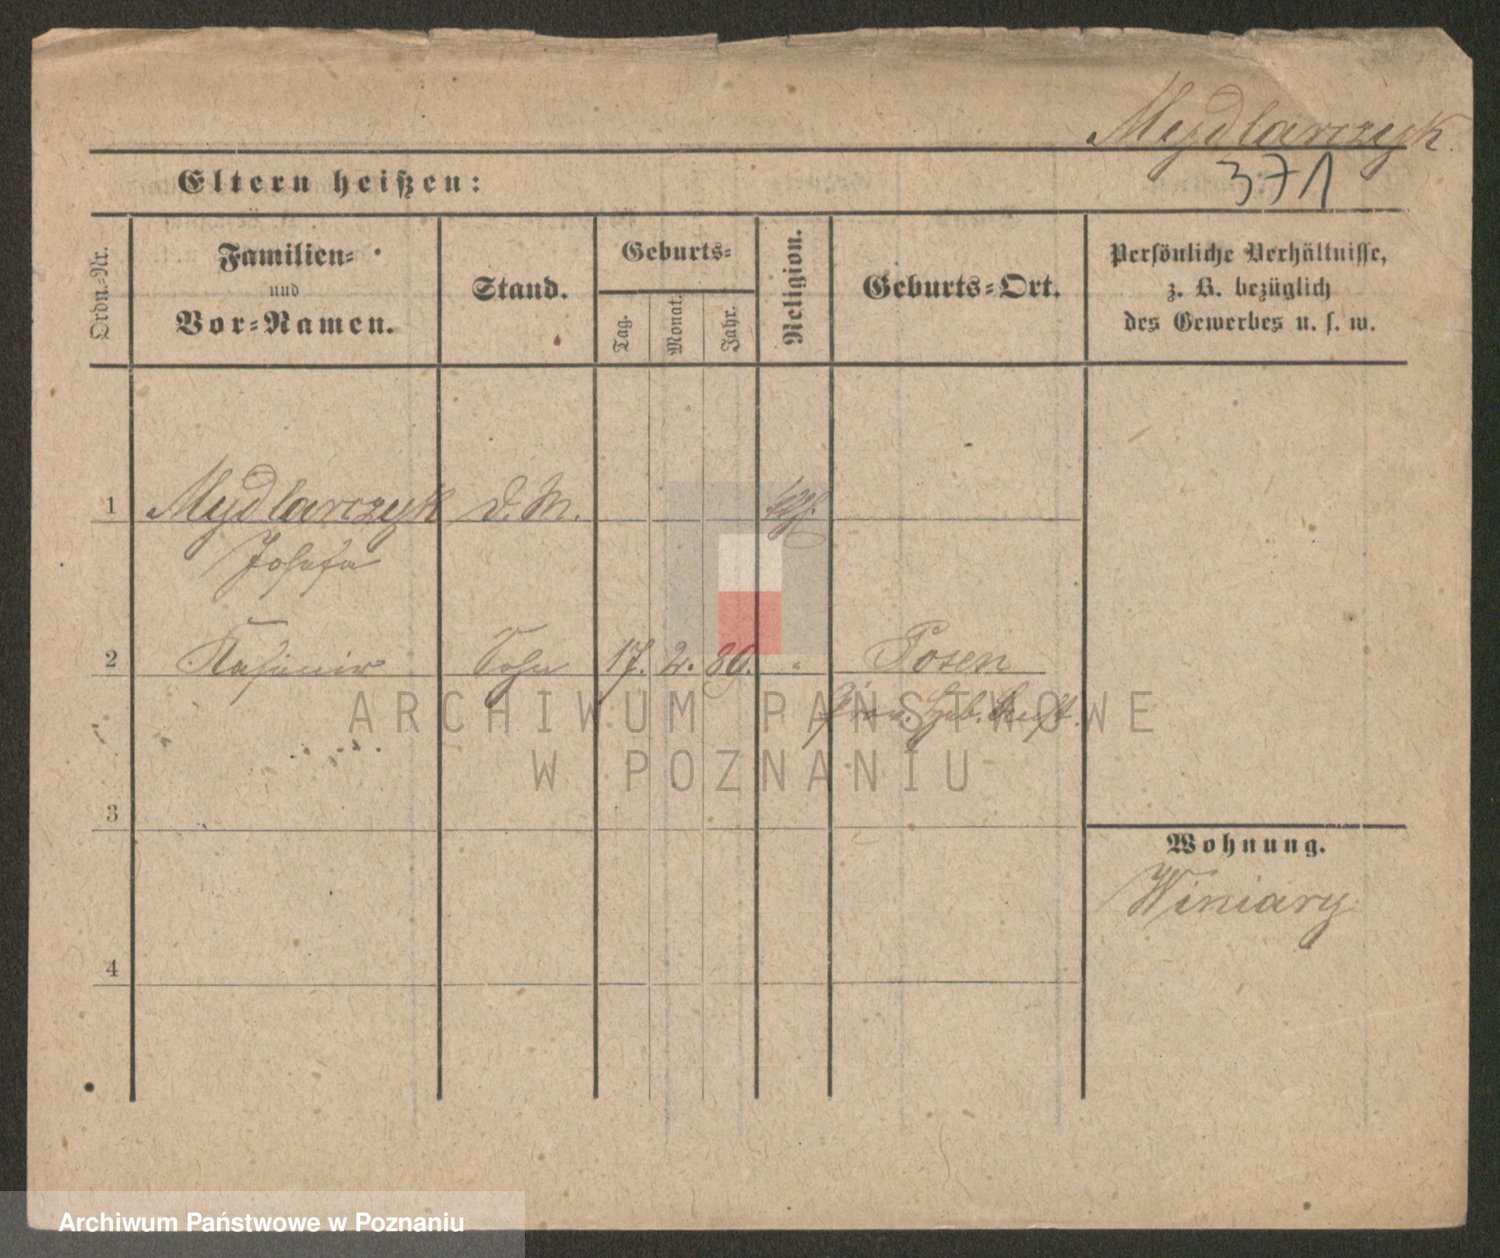 Mydlarczyk.
371
Eltern heißen:
Ordn.-Nr.
Familien-
und
Vor-Namen.
Stand.
Geburts-
Tag.
Monat.
Jahr.
Religion.
Geburts-Ort.
Persönliche Verhältnisse,
z. B. bezüglich
des Gewerbes u. s. w.
1 Mydlarczyk D. M. kth.
Josefa
2 Kasimir Sohn 17. 2. 89. " Posen
Prov. Heb. Anst.
3
4
Wohnung.
Winiary
ARCHIWUM PAŃSTWOWE
W POZNANIU
Archiwum Państwowe w Poznaniu